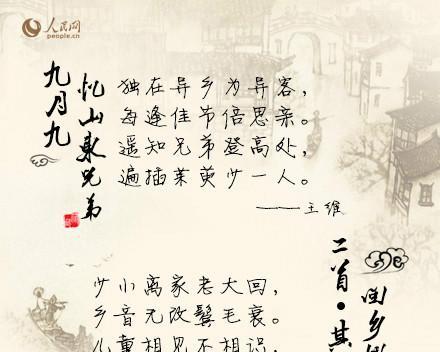 人民网
people.cn
九月九
忆山东兄弟
独在异乡为异客，
每逢佳节倍思亲。
遥知兄弟登高处，
遍插茱萸少一人。
——王维
二首·其
回乡
少小离家老大回，
乡音无改鬓毛衰。
儿童相见不相识，